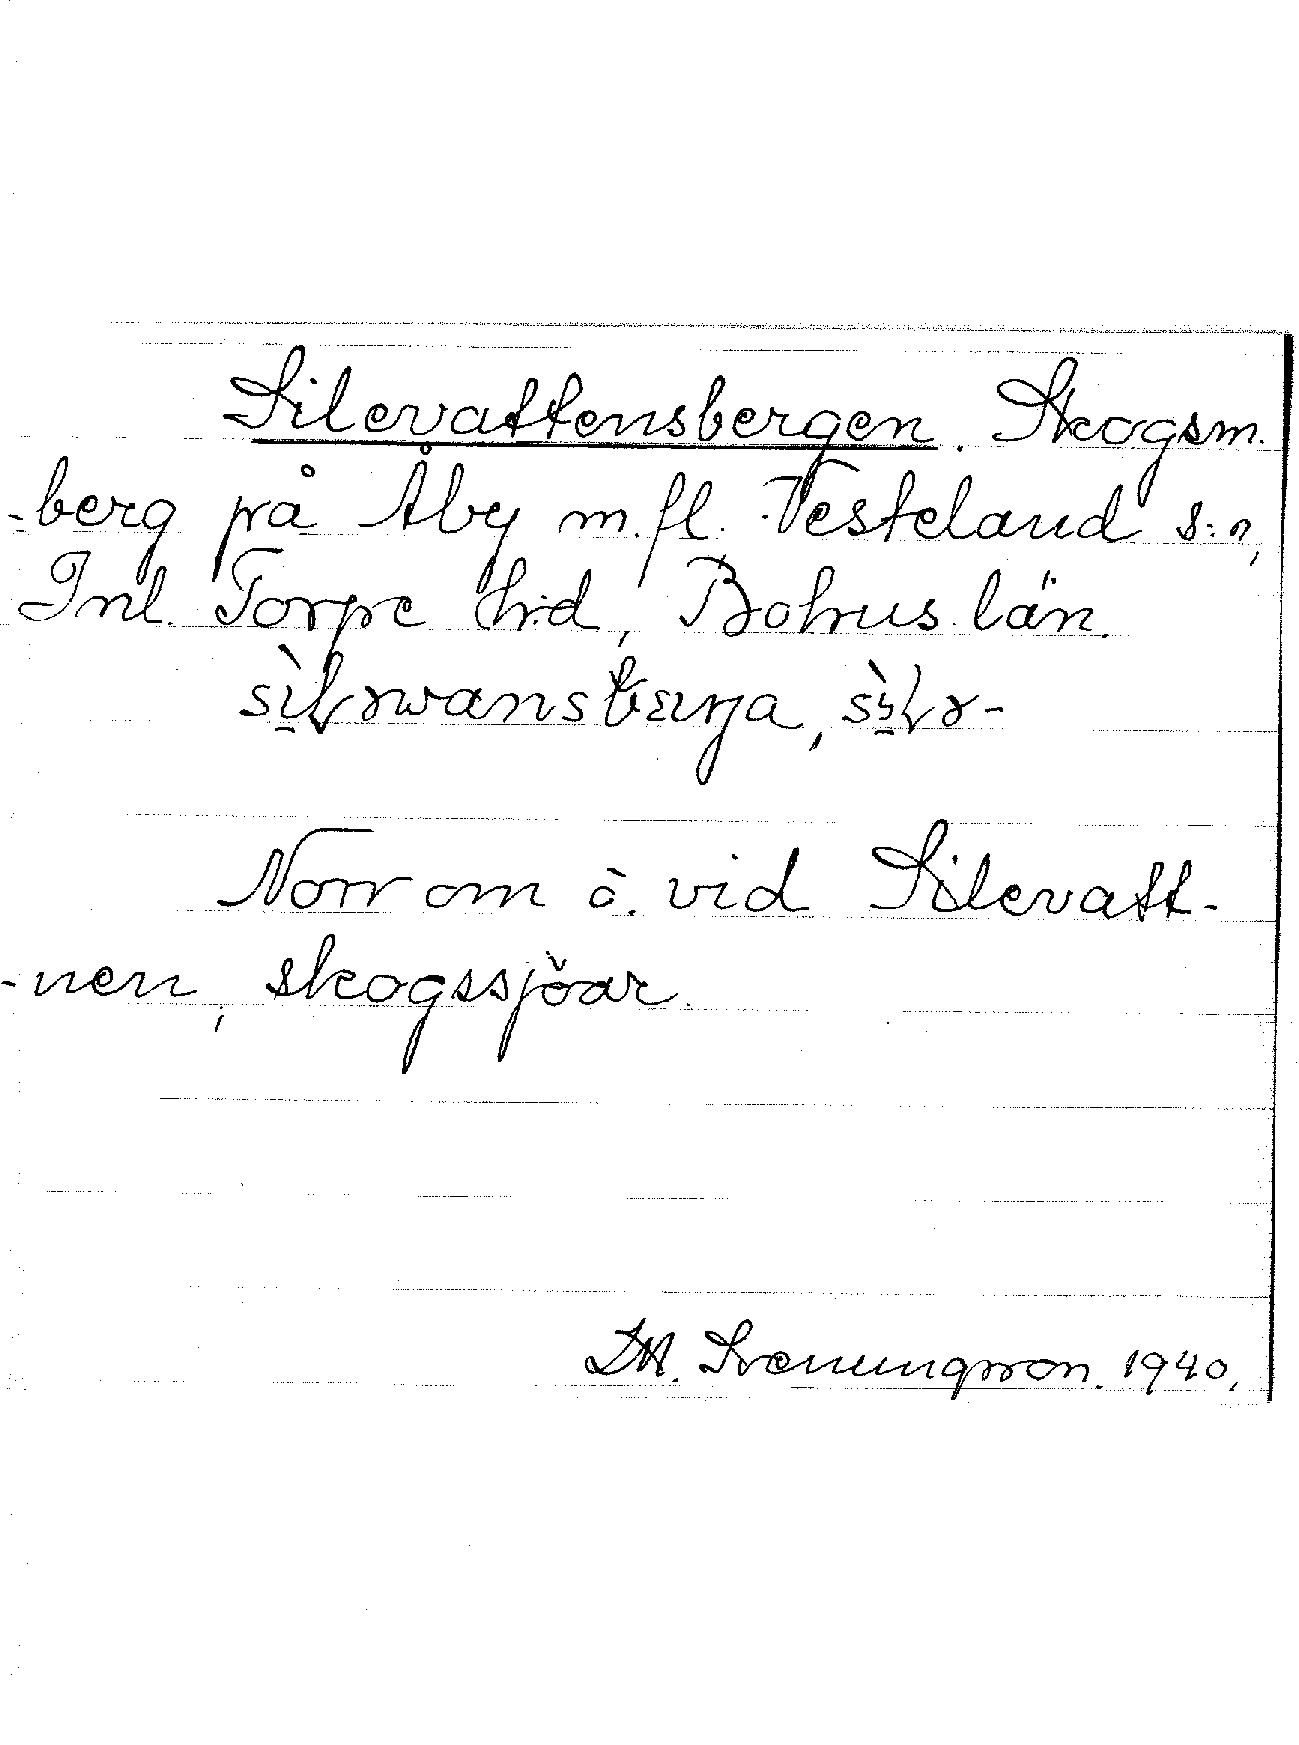 Silevattensbergen. Skogsm.
-berg på Åby m.fl. Vesteland s:n,
Inl. Torpe h:d, Bohus län.
Norr om o. vid Silevatt-
-nen, skogssjöar.
D.M. Svenungsson. 1940.